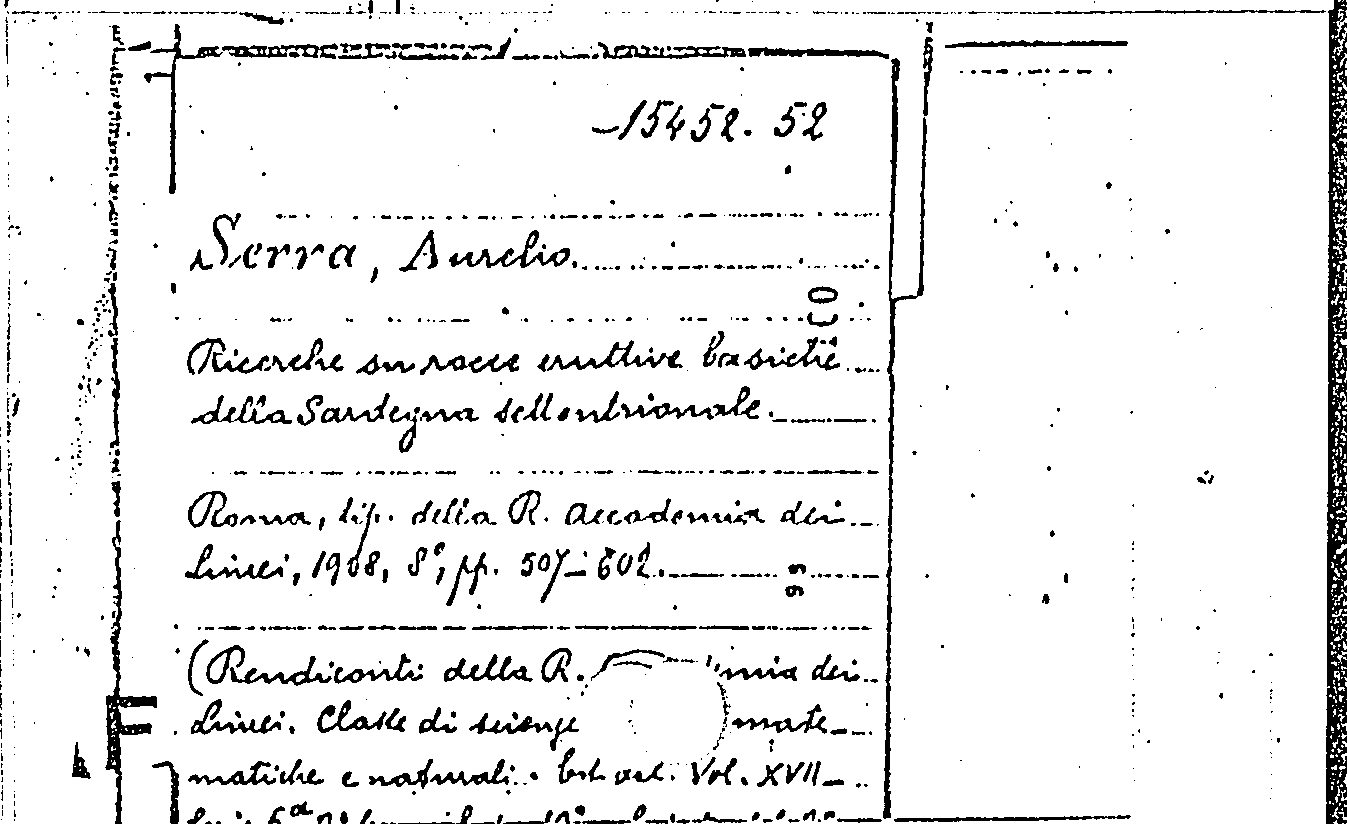 15452. 52
Serra, Aurelio.
Ricerche su rocce eruttive basiche
della Sardegna settentrionale.
Roma, tip. della R. Accademia dei
Lincei, 1908, 8°, pp. 507-602.
(Rendiconti della R. mia dei
Lincei. Classe di scienze mate-
matiche e naturali. Vol. XVII-